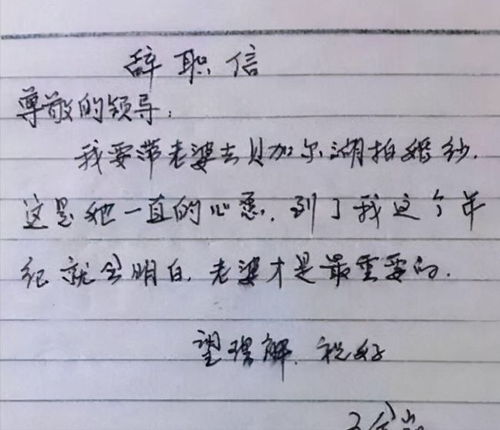 辞职信
尊敬的领导:
我要带老婆去贝加尔湖拍婚纱.
这是她一直的心愿.到了我这个年
纪就会明白,老婆才是最重要的.
望理解.祝好